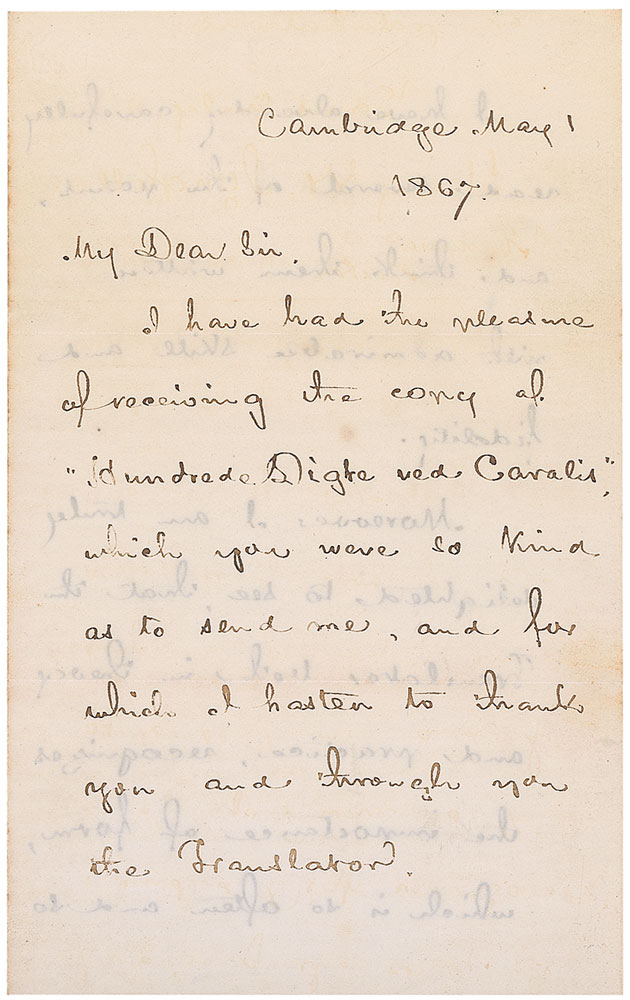 Cambridge May 1
1867.
My Dear Sir,
I have had the pleasure
of receiving the copy of
"Hundrede Digte ved Caralis",
which you were so kind
as to send me, and for
which I hasten to thank
you and through you
the Translator.